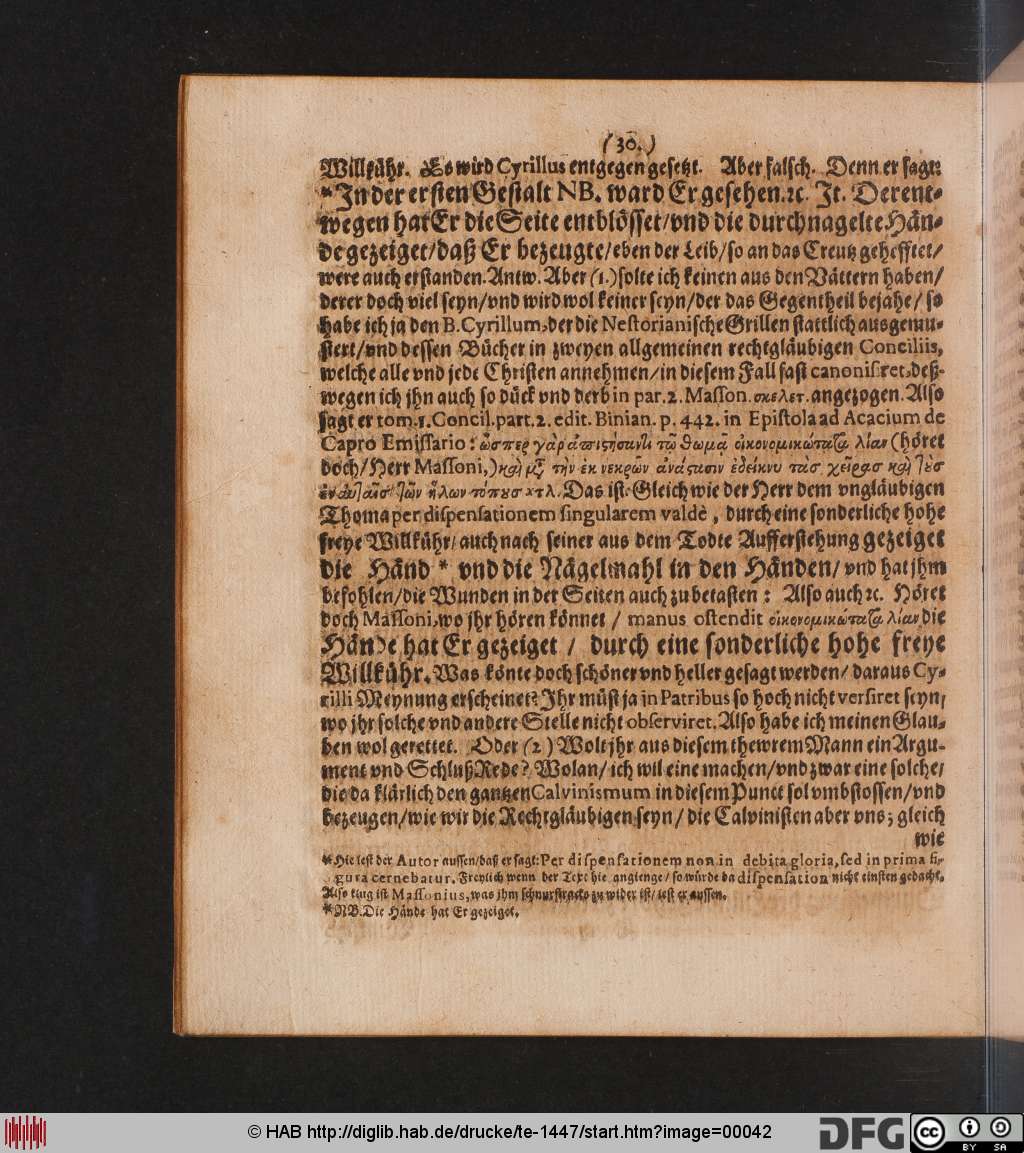 (30.)
Willkühr. Es wird Cyrillus entgegen gesetzt. Aber falsch. Denn er sagt:
*In der ersten Gestalt NB. ward Er gesehen.ꝛc. It. Derent-
wegen hat Er die Seite entblösset/vnd die durchnagelte Hän-
de gezeiget/daß Er bezeugte/eben der Leib/so an das Creutz gehefftet/
were auch erstanden. Antw. Aber (1.) solte ich keinen aus den Vättern haben/
derer doch viel seyn/vnd wird wol keiner seyn/der das Gegentheil bejahe/ so
habe ich ja den B. Cyrillum, der die Nestorianische Grillen stattlich ausgemu-
stert/vnd dessen Bücher in zweyen allgemeinen rechtgläubigen Conciliis,
welche alle vnd jede Christen annehmen/in diesem Fall fast canonisiret, deß-
wegen ich jhn auch so dück vnd derb in par. 2. Masson. σκελετ. angezogen. Also
sagt er tom. 1. Concil. part. 2. edit. Binian. p. 442. in Epistola ad Acacium de
Capro Emissario: ὥσπερ γὰρ ἀπιςήσαντι τῷ θωμᾷ οἰκονομικώταζα λίαν (höret
doch/Herr Massoni,) καὶ μζ τὴν ἐκ νεκρῶν ἀνάςασιν ἐδείκνυ τὰσ χεῖρας καὶ τὺσ
ἐν αὐταῖσ τῶν ἥλων τόπυσ κτλ. Das ist: Gleich wie der Herr dem vngläubigen
Thoma per dispensationem singularem valdè, durch eine sonderliche hohe
freye Willkühr/auch nach seiner aus dem Todte Aufferstehung gezeiget
die Händ * vnd die Nägelmahl in den Händen/ vnd hat jhm
befohlen/die Wunden in der Seiten auch zu betasten: Also auch ꝛc. Höret
doch Massoni, wo jhr hören könnet / manus ostendit οἰκονομικώταζα λίαν die
Hände hat Er gezeiget / durch eine sonderliche hohe freye
Willkühr. Was könte doch schöner vnd heller gesagt werden/ daraus Cy-
rilli Meynung erscheinet? Ihr müst ja in Patribus so hoch nicht versiret seyn/
wo jhr solche vnd andere Stelle nicht observiret. Also habe ich meinen Glau-
ben wol gerettet. Oder (2) Wolt jhr aus diesem thewrem Mann ein Argu-
ment vnd SchlußRede? Wolan/ ich wil eine machen/vnd zwar eine solche/
die da klärlich den gantzen Calvinismum in diesem Punct sol vmbstossen/vnd
bezeugen/wie wir die Rechtgläubigen seyn/ die Calvinisten aber vns; gleich
wie
*Hie lest der Autor aussen/daß er sagt: Per dispensationem non in debita gloria, sed in prima fi-
gura cernebatur. Freylich wenn der Text hie angienge/ so würde da dispensation nicht einsten gedacht.
Also klug ist Massonius, was jhm schnurstracks zu wider ist/ lest er aussen.
* NB. Die Hände hat Er gezeiget.
© HAB http://diglib.hab.de/drucke/te-1447/start.htm?image=00042
DFG
cc BY SA